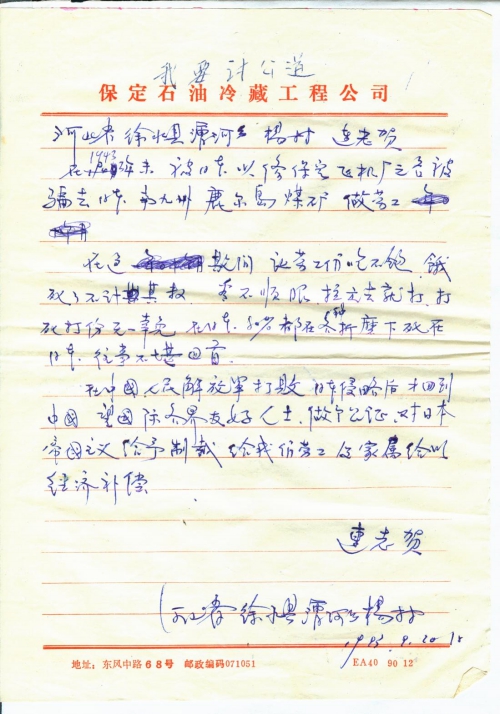 我要讨公道
保定石油冷藏工程公司
河北省徐水县漕河乡杨村 连志贺
在1943年末 被日本以修保定飞机厂之名被
骗去日本 南九州 鹿尔島煤矿 做劳工
在这 期间 让劳工们吃不饱 饿
死了不计其数 看不顺眼 拉出去就打, 打
死打伤无一幸免 在日本 都在 折磨下死在
日本, 往事不堪回首.
在中國人民解放军打敗日本侵略后才回到
中國 望國际各界友好人士, 做个公证, 对日本
帝國主义给予制裁 给我们劳工及家属给以
经济补偿
連志贺
河北省徐水县漕河乡楊村
地址: 东风中路68号 邮政编码071051 EA40 90 12